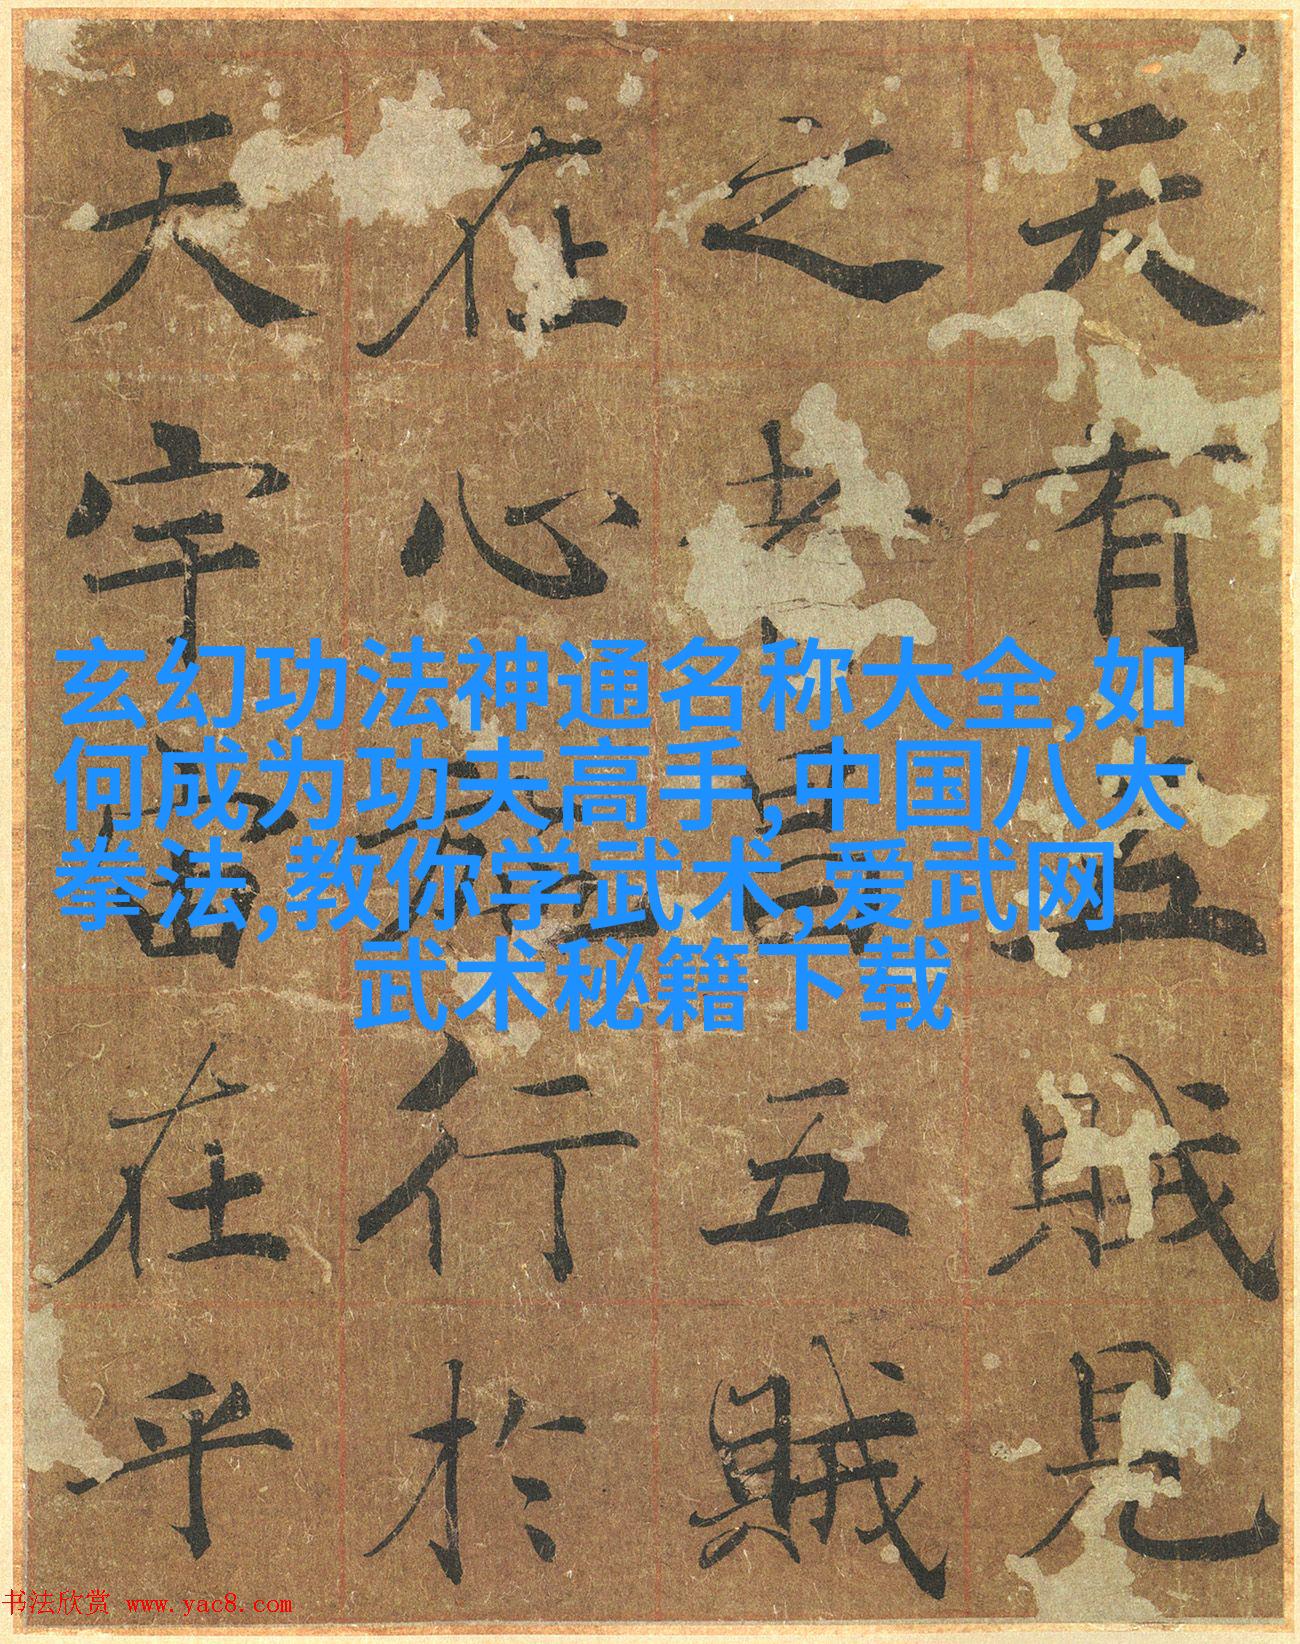 天有五賊見
之者昌五賊
在心施行於
天宇宙在乎
玄幻功法神通名称大全,如
何成为功夫高手,中国八大
拳法,教你学武术,爱武网
武术秘籍下载
书法欣赏 www.yac8.com